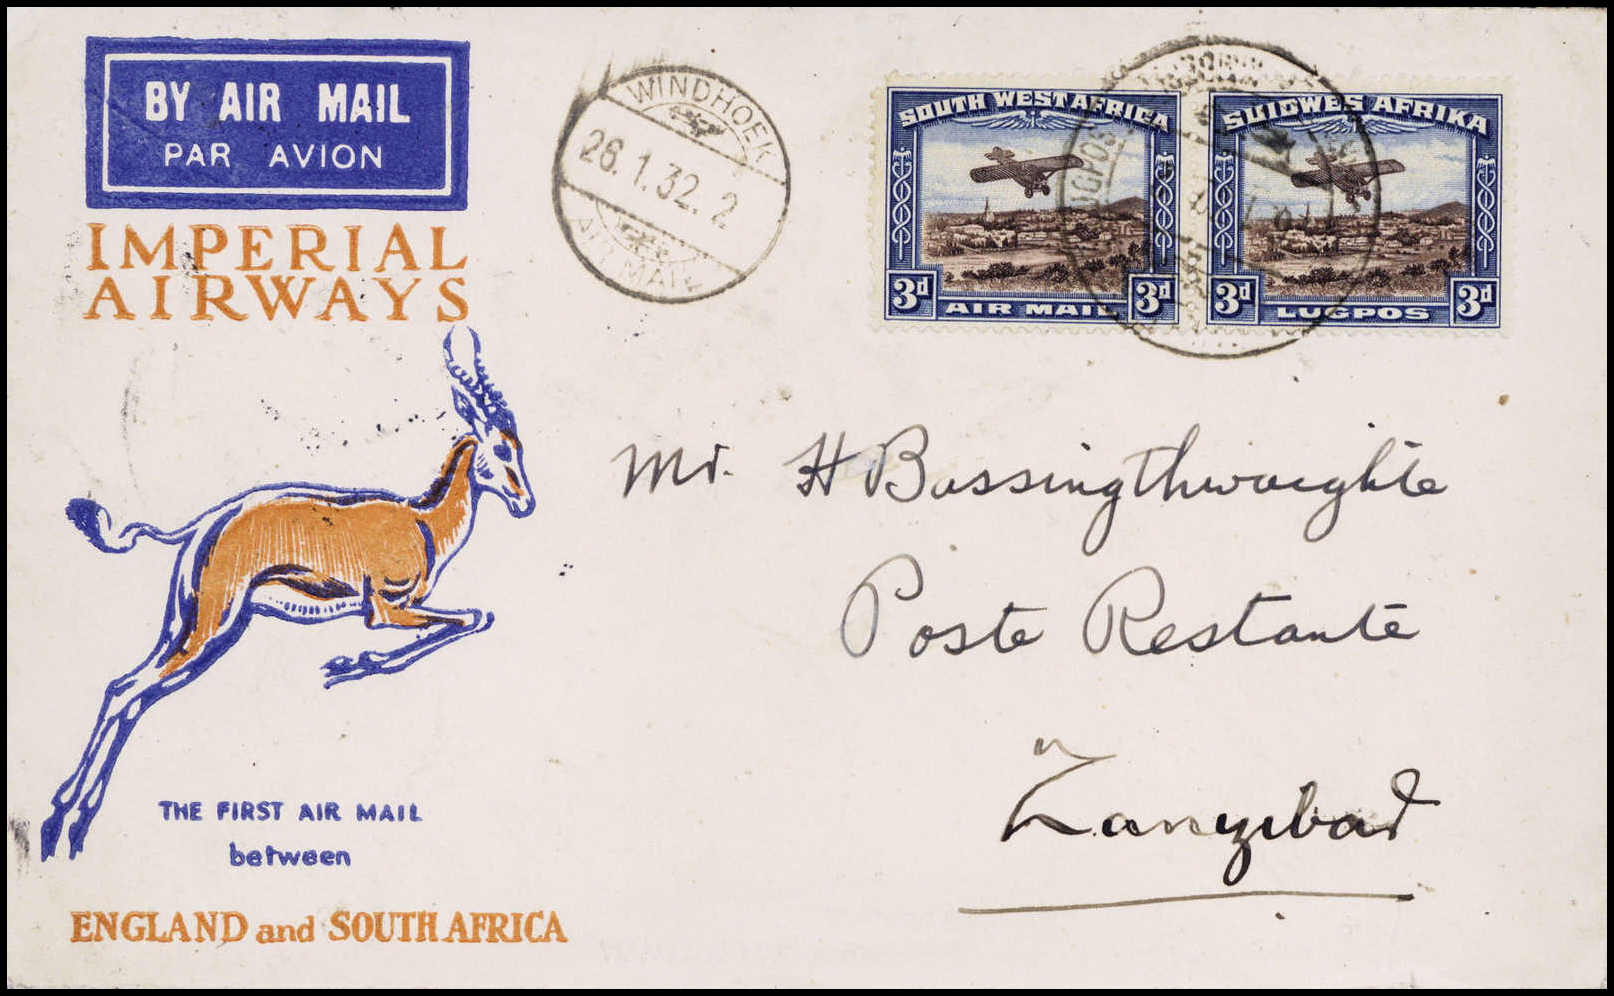 BY AIR MAIL
PAR AVION
IMPERIAL
AIRWAYS
THE FIRST AIR MAIL
between
ENGLAND and SOUTH AFRICA
WINDHOEK
26.1.32.2
AIR MAIL
SOUTH WEST AFRICA
3d 3d
AIR MAIL
SUIDWES AFRIKA
3d 3d
LUGPOS
Mr. H Bassingthwaighte
Poste Restante
Zanzibar